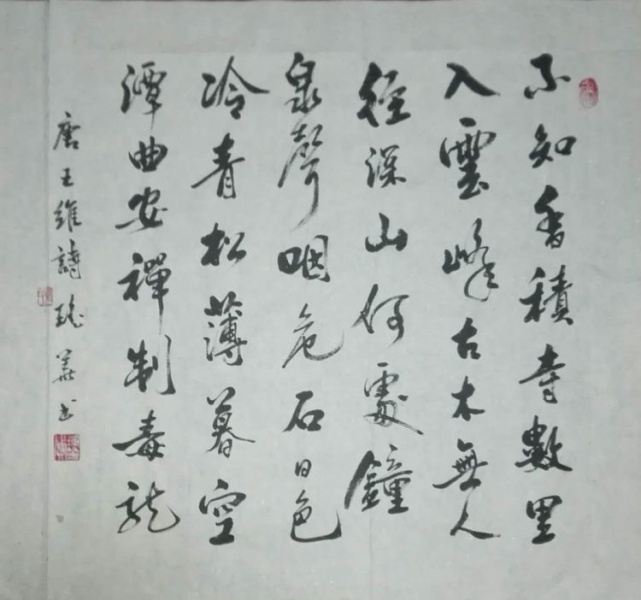 不知香積寺數里
入雲峰古木無人
徑深山何處鐘
泉聲咽危石日色
冷青松薄暮空
潭曲安禪制毒龍
唐王維詩 華書